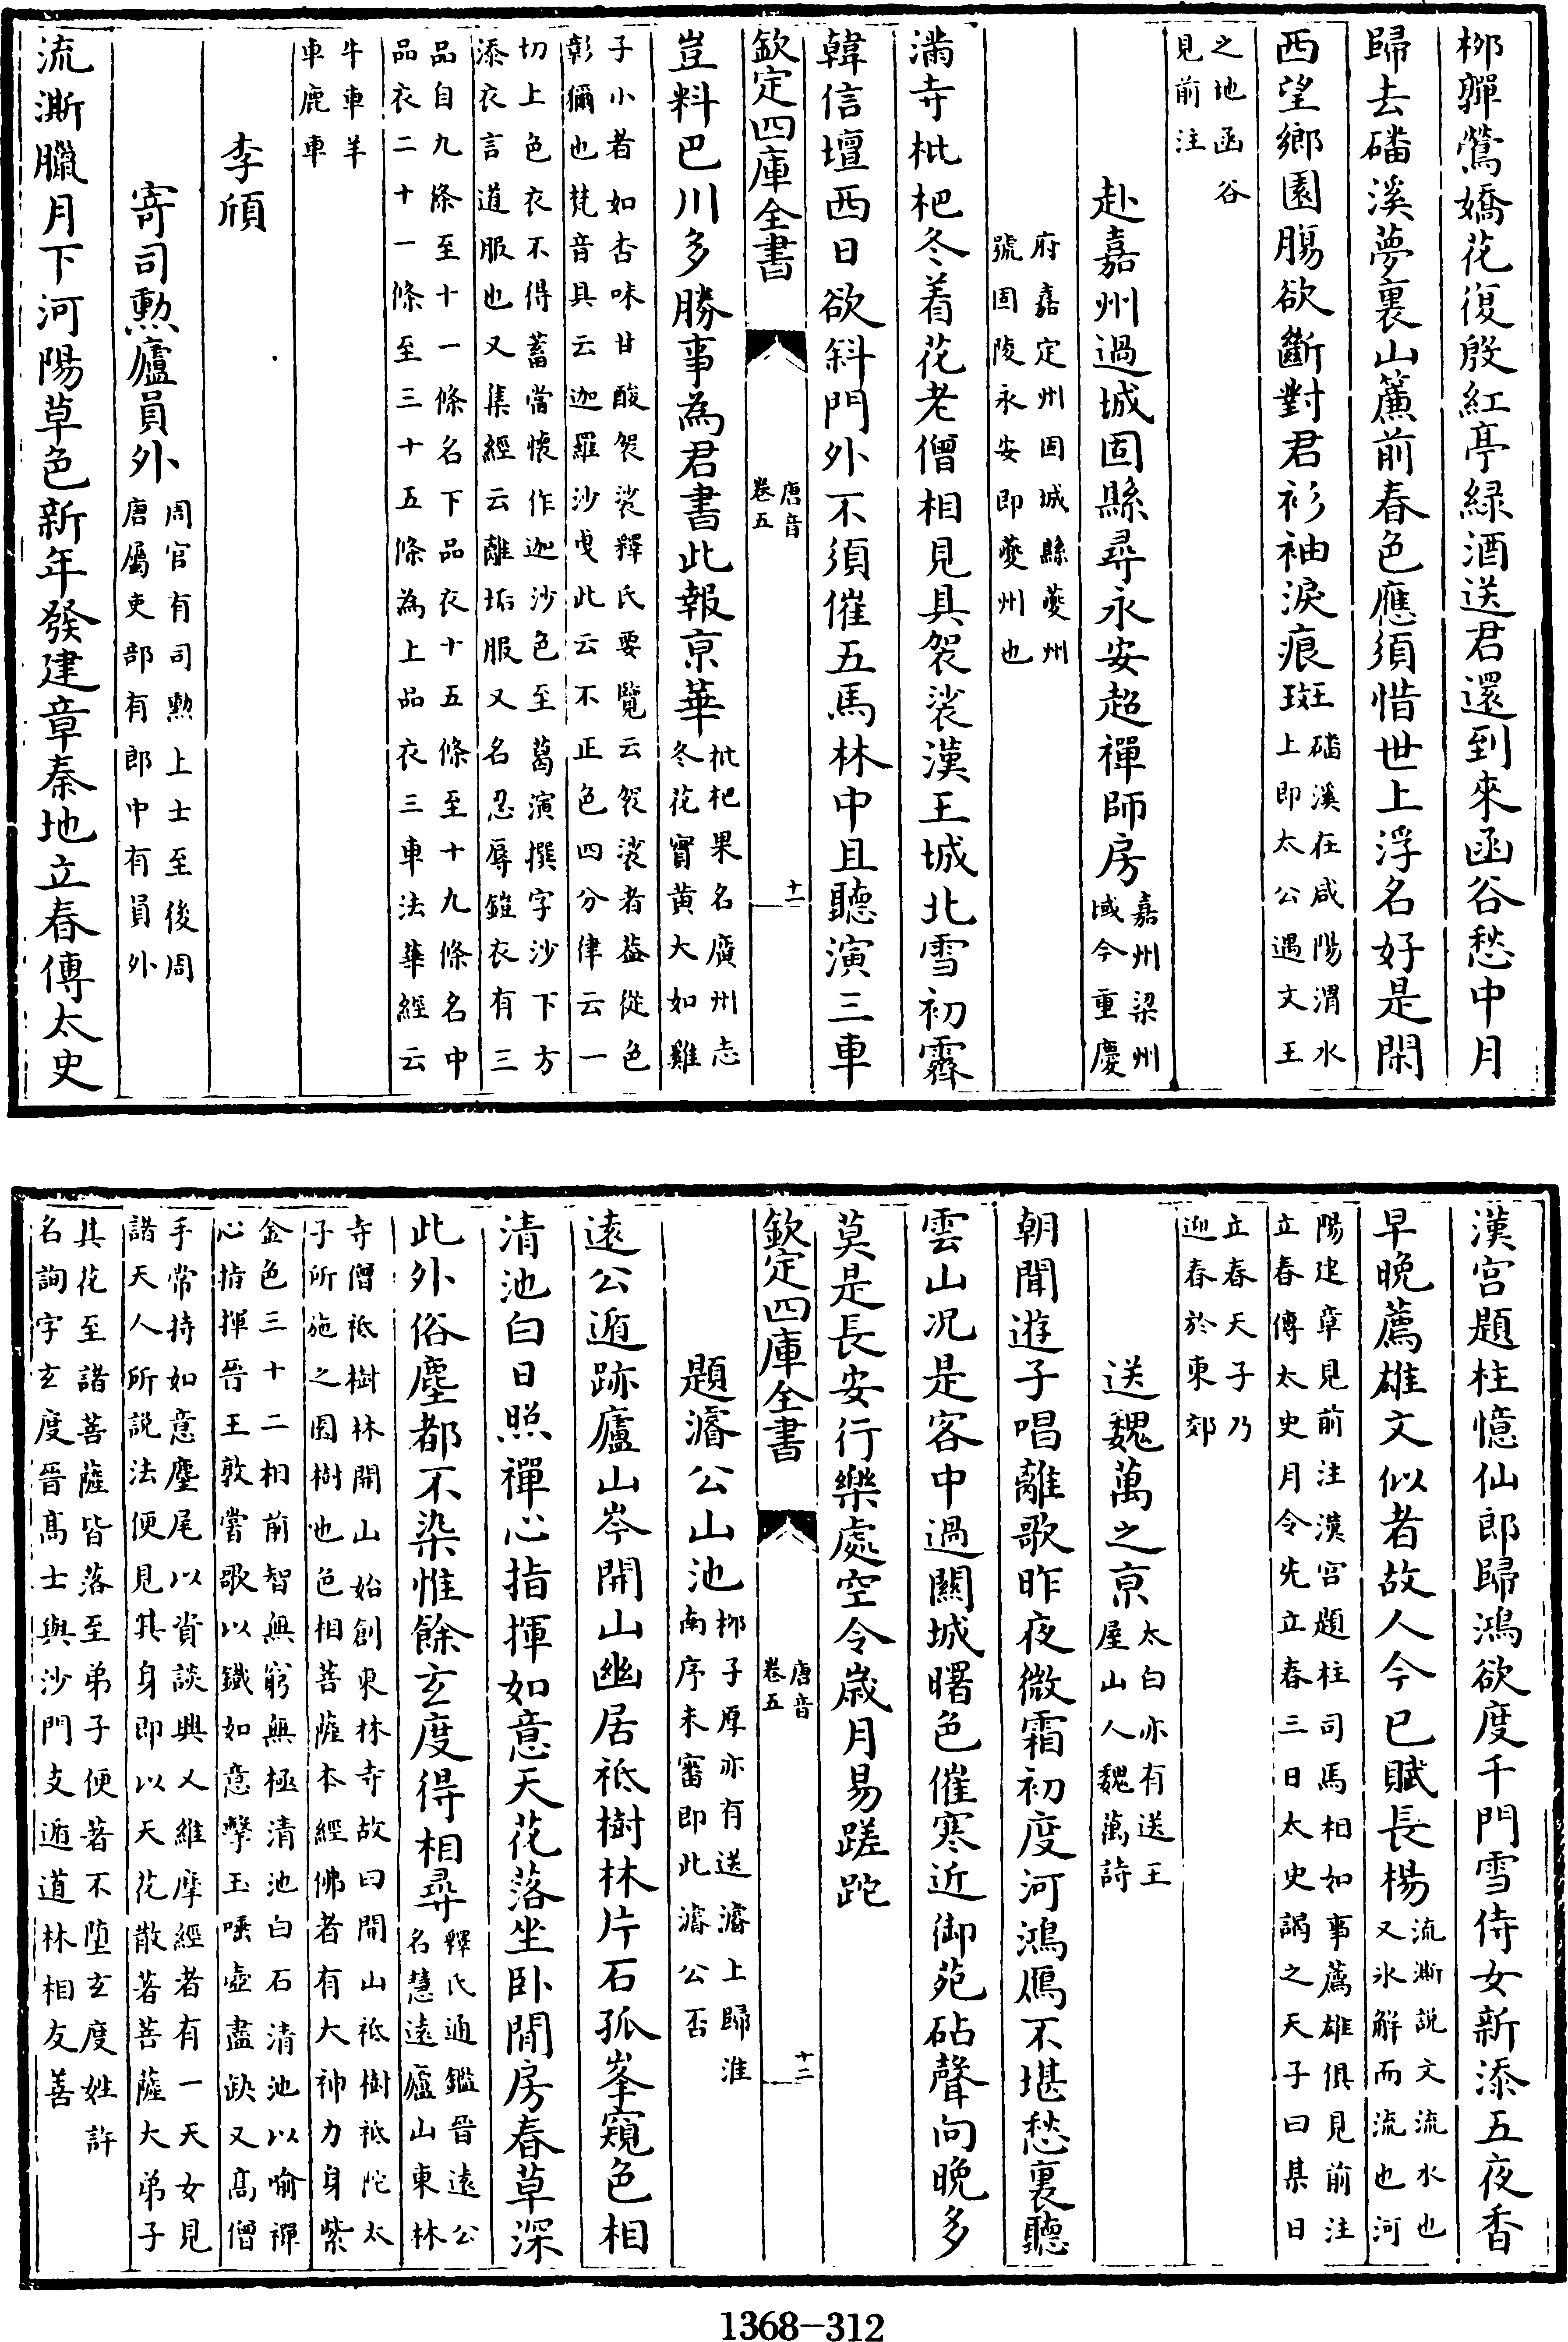 栁嚲鶯嬌花復殷紅亭緑酒送君還到來函谷愁中月
歸去磻溪夢裏山簾前春色應須惜世上浮名好是閑
西望鄉園腸欲斷對君衫袖淚痕斑磻溪在咸陽渭水上即太公遇文王
之地函谷見前注
赴嘉州過城固縣尋永安超禪師房嘉州梁州域今重慶
府嘉定州固城縣夔州號固陵永安即夔州也
滿寺枇杷冬着花老僧相見具袈裟漢王城北雪初霽
韓信壇西日欲斜門外不須催五馬林中且聽演三車
欽定四庫全書
唐音卷五
十一
豈料巴川多勝事為君書此報京華枇杷果名廣州志冬花實黄大如雞
子小者如杏味甘酸袈裟釋氏要覽云袈裟者葢從色彰獮也梵音具云迦羅沙曳此云不正色四分律云一
切上色衣不得蓄當懷作迦沙色至葛演撰字沙下方添衣言道服也又集經云離垢服又名忍辱鎧衣有三
品自九條至十一條名下品衣十五條至十九條名中品衣二十一條至三十五條為上品衣三車法華經云
牛車羊車鹿車
李頎
寄司勲廬員外周官有司勲上士至後周唐屬吏部有郎中有員外
流澌臘月下河陽草色新年發建章秦地立春傳太史
漢宫題柱憶仙郎歸鴻欲度千門雪侍女新添五夜香
早晩薦雄文似者故人今已賦長楊流澌説文流水也又氷解而流也河
陽建章見前注漢宫題柱司馬相如事薦雄俱見前注立春傳太史月令先立春三日太史謁之天子曰某日
立春天子乃迎春於東郊
送魏萬之京太白亦有送王屋山人魏萬詩
朝聞遊子唱離歌昨夜微霜初度河鴻鴈不堪愁裏聽
雲山况是客中過關城曙色催寒近御苑砧聲向晩多
莫是長安行樂處空令歲月易蹉跎
欽定四庫全書
唐音卷五
十二
題濬公山池栁子厚亦有送濬上歸淮南序未審即此濬公否
遠公遁跡廬山岑開山幽居祗樹林片石孤峯窺色相
清池白日照禪心指揮如意天花落坐卧閒房春草深
此外俗塵都不染惟餘玄度得相尋釋氏通鑑晉遠公名慧遠廬山東林
寺僧祗樹林開山始創東林寺故曰開山祗樹祗陀太子所施之園樹也色相菩薩本經佛者有大神力身紫
金色三十二相前智無窮無極清池白石清池以喻禪心指揮晉王敦嘗歌以鐵如意擊玉唾壺盡缺又髙僧
手常持如意麈尾以資談興又維摩經者有一天女見諸天人所説法便見其身即以天花散著菩薩大弟子
其花至諸菩薩皆落至弟子便著不堕玄度姓許名詢字玄度晉髙士與沙門支遁道林相友善
1368-312